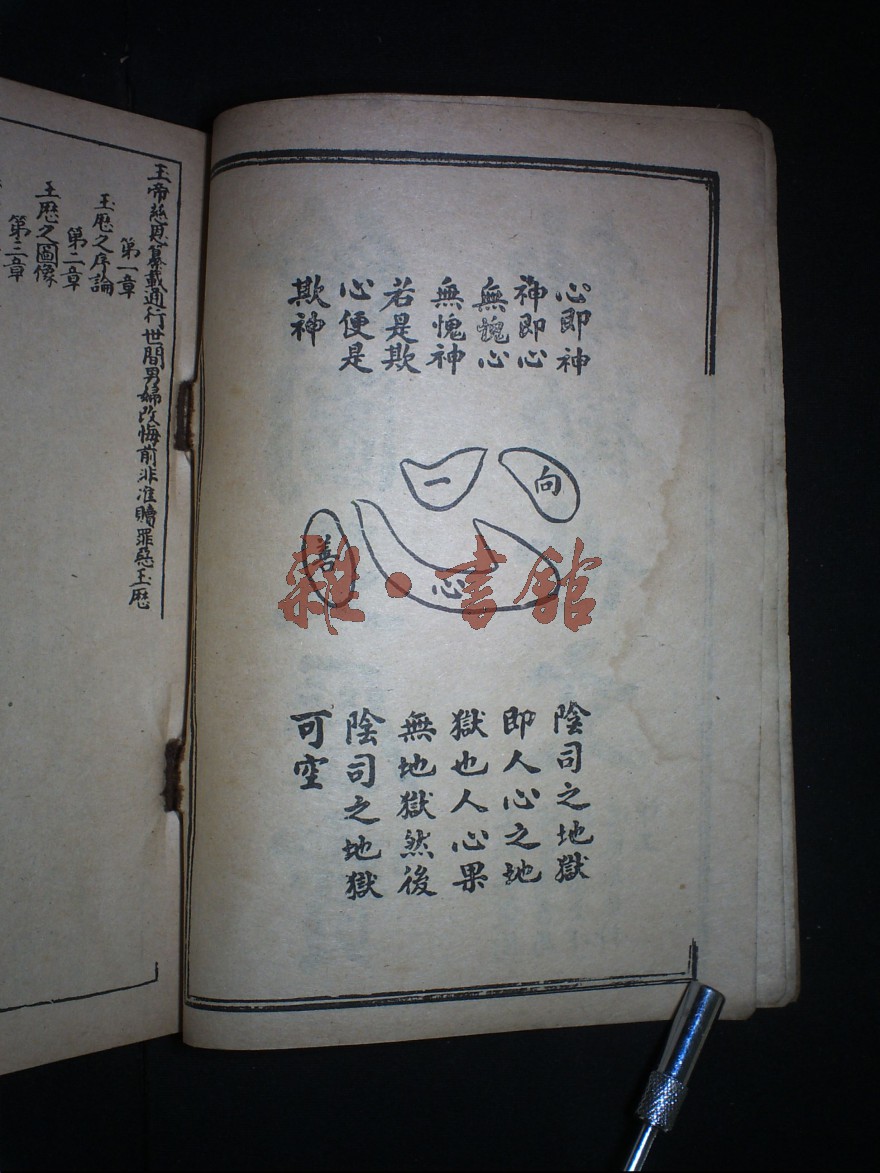 心即神
神即心
無愧心
無愧神
若是欺
心便是
欺神
向
一
心
善
陰司之地獄
即人心之地
獄也人心果
無地獄然後
陰司之地獄
可空
玉帝慈恩纂載通行世間男婦改悔前非准贖罪惡玉歷
第一章
玉歷之序論
第二章
玉歷之圖像
第三章
雜·書館